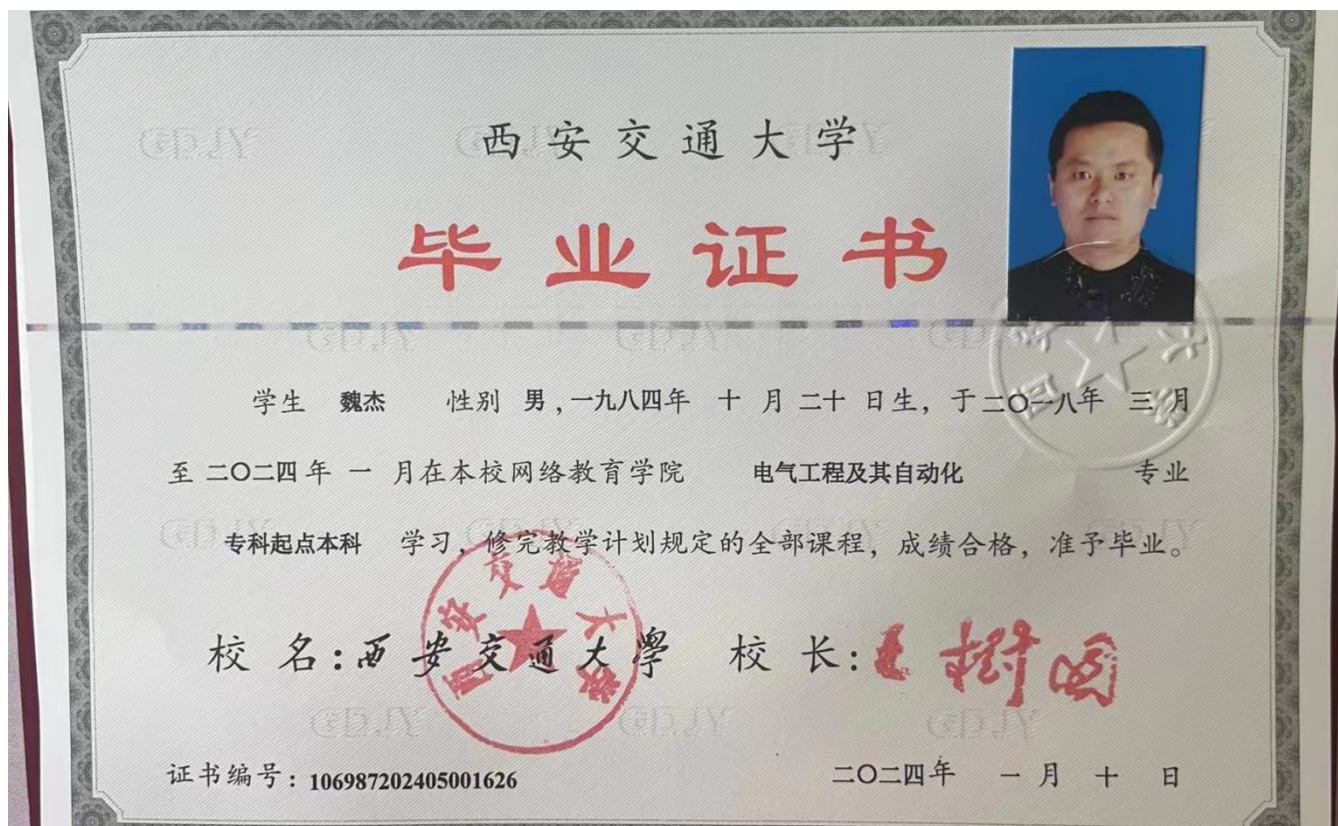 西安交通大学
毕业证书
学生 魏杰 性别 男,一九八四年 十 月 二十 日生，于二〇一八年 三 月
至 二〇二四 年 一 月在本校网络教育学院 电气工程及其自动化 专业
专科起点本科 学习，修完教学计划规定的全部课程，成绩合格，准予毕业。
校 名:西安交通大學 校 长:王树国
西安交通大学
证书编号: 106987202405001626 二〇二四年 一 月 十 日